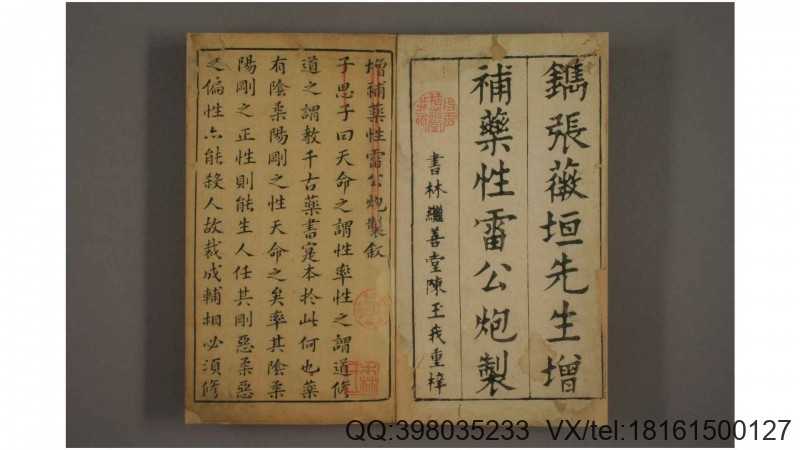 鐫張薇垣先生增
補藥性雷公炮製
書林繼善堂陳玉我重梓
增補藥性雷公炮製敘
子思子曰天命之謂性率性之謂道修
道之謂教千古藥書寔本於此何也藥
有陰柔陽剛之性天命之矣率其陰柔
陽剛之正性則能生人任其剛惡柔惡
之偏性亦能殺人故裁成輔相必須修
QQ:398035233 VX/tel:18161500127